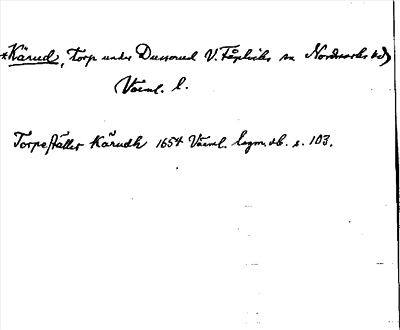 *Kärud, Torp under Dusserud V. Fågelviks sn Nordmarks hd
Värml. l.
Torpestället Kärudh 1654 Värml. lagm. db. s. 103.